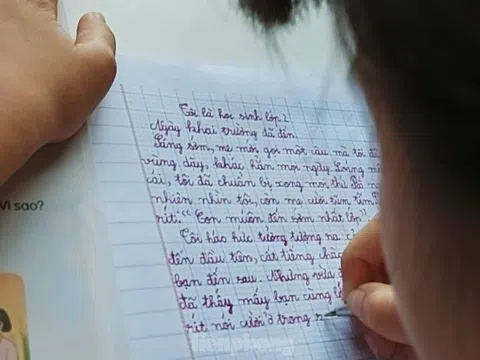 Vì sao?
Tôi là học sinh lớp 2
Ngày khai trường đã đến.
Sáng sớm, mẹ mới gọi một câu mà tôi đã
vùng dậy, khác hẳn mọi ngày. Loáng một
cái, tôi đã chuẩn bị xong mọi thứ. Bà n
nhiên nhìn tôi, còn mẹ cười tủm tỉm
rít: "Con muốn đến sớm nhất lớp
Tôi háo hức tưởng tượng ra c
đến đầu tiên, cất tiếng chào
bạn đến sau. Nhưng vừa đ
đã thấy mấy bạn cùng lớ
rít nói cười ở trong s